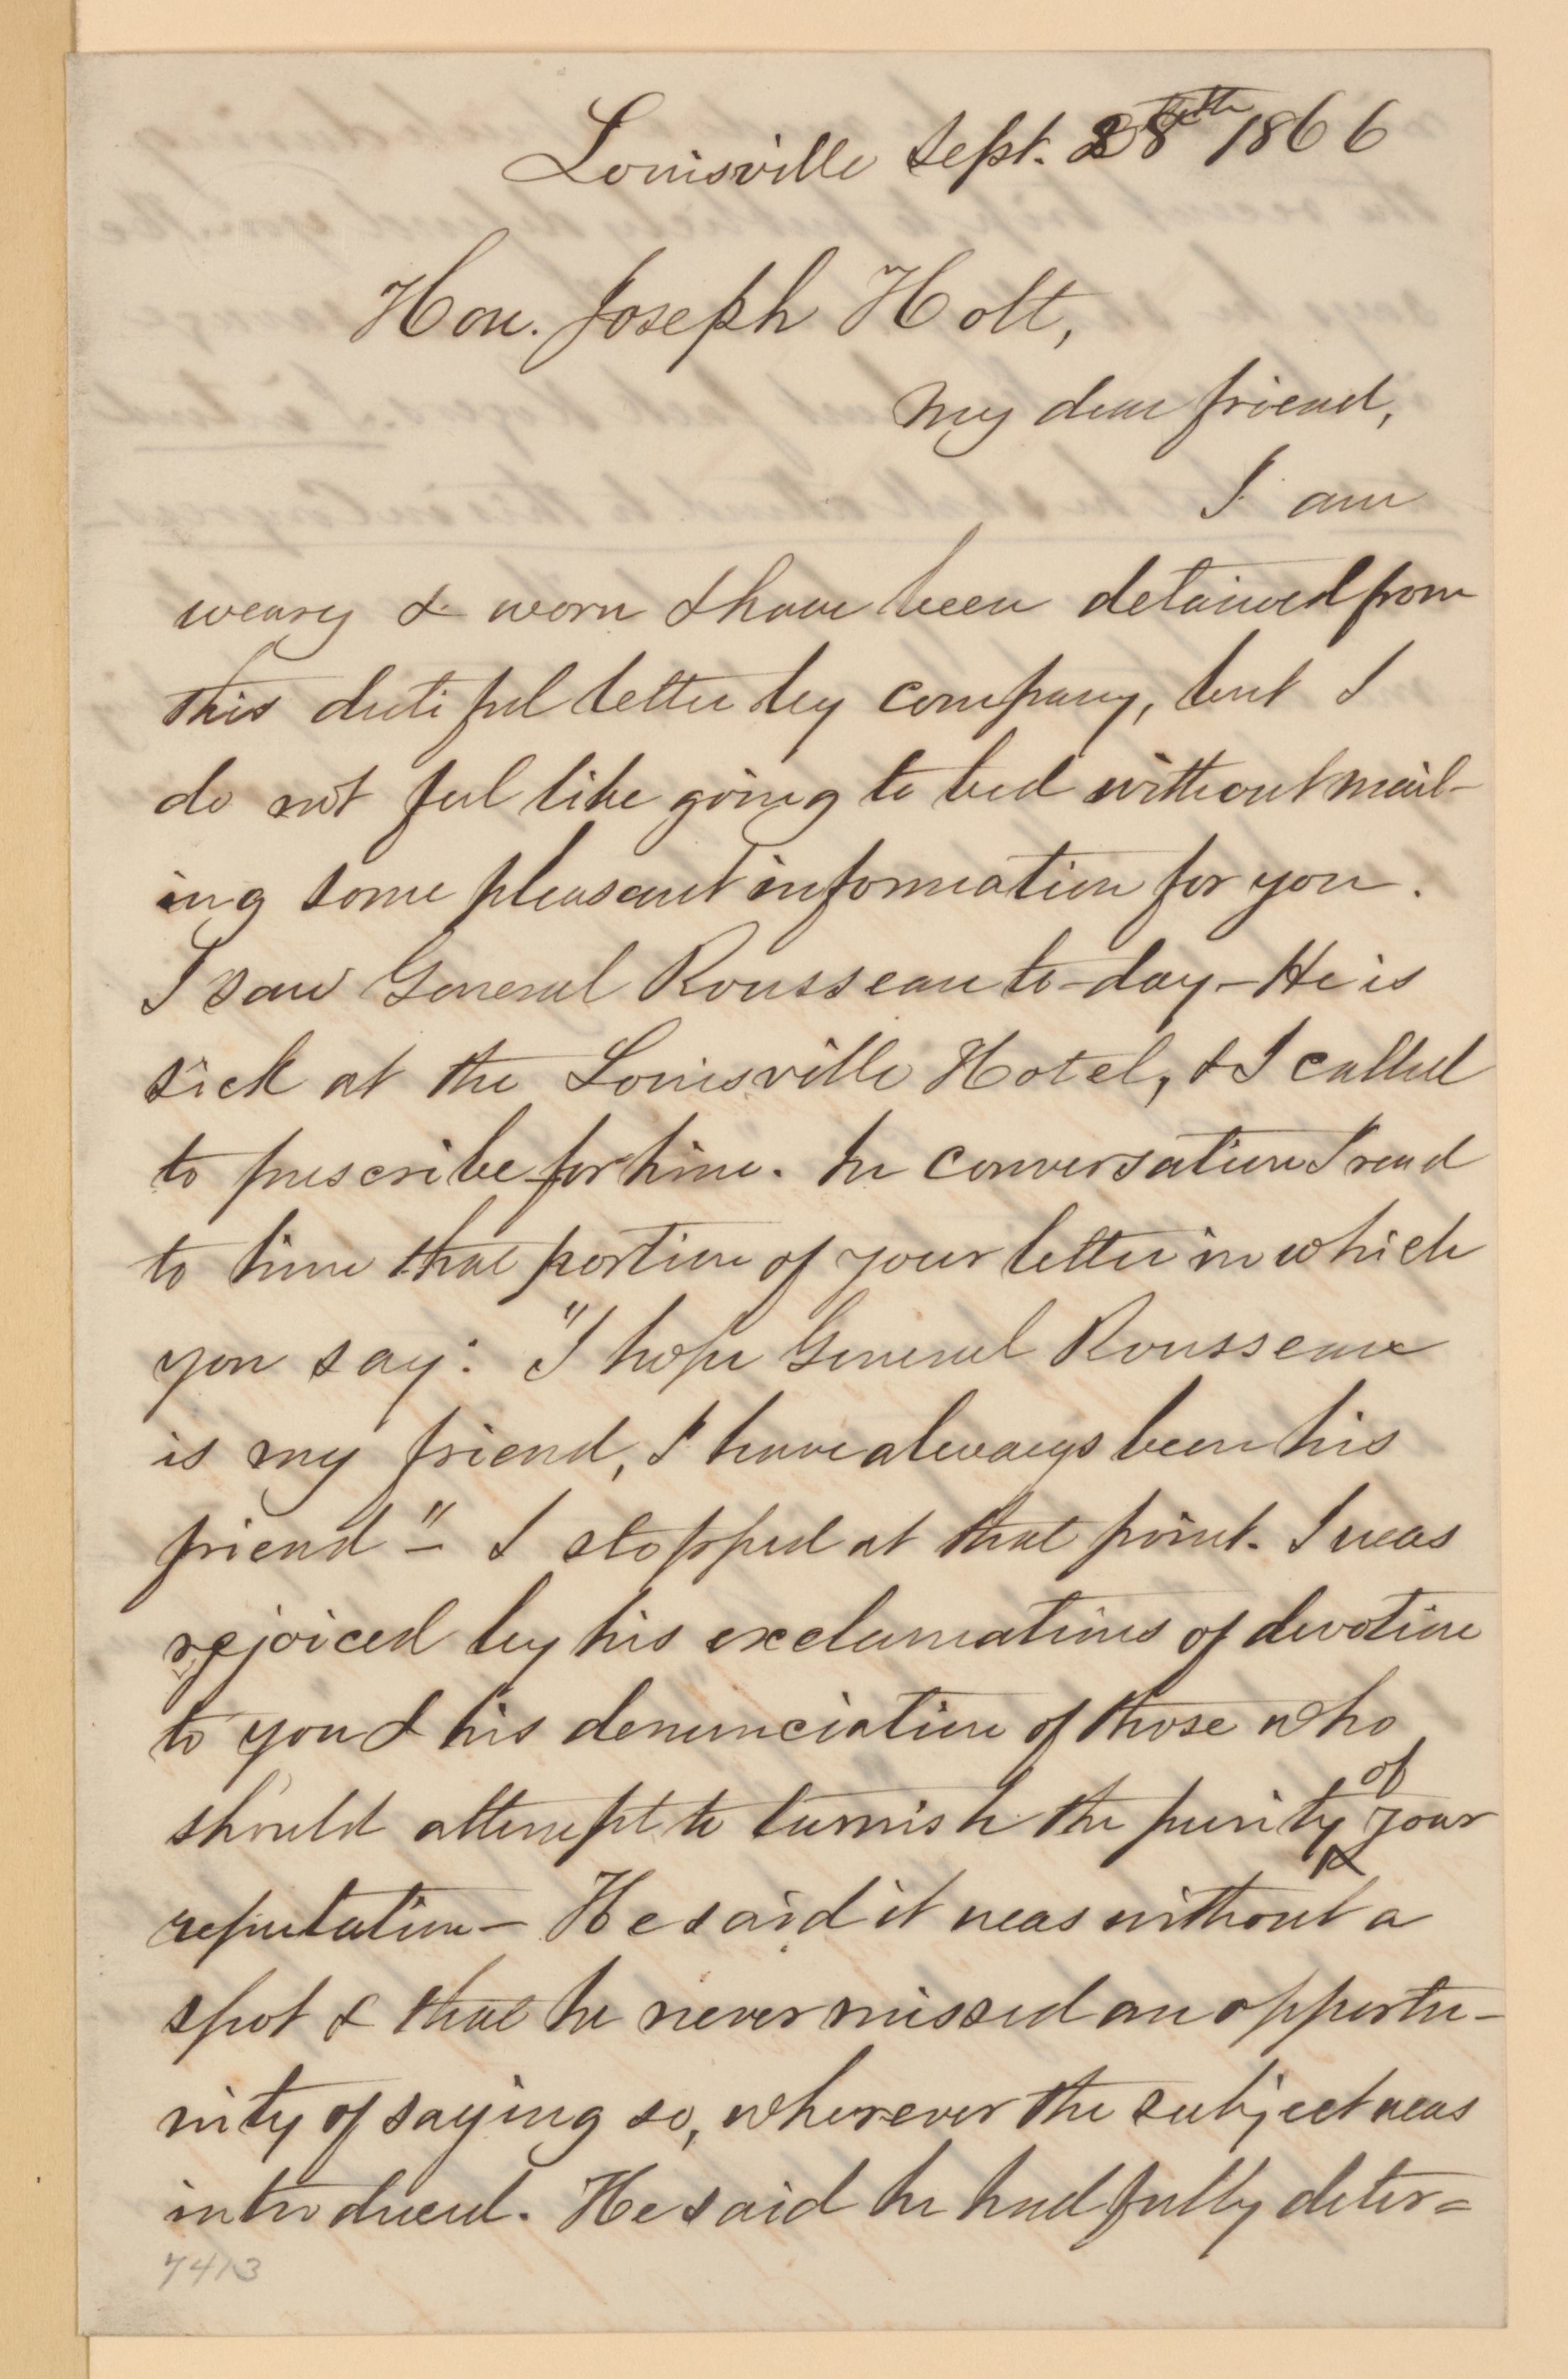 Louisville Sept. 28th 1866
Hon. Joseph Holt,
My dear friend,
I am
weary & worn & have been detained from
this dutiful letter by company, but I
do not feel like going to bed without mail-
ing some pleasant information for you.
I saw General Rousseau to-day - He is
sick at the Louisville Hotel, & I called
to prescribe for him. In conversation I read
to him that portion of your letter in which
you say: "I hope General Rousseau
is my friend, I have always been his
friend" - I stopped at that point. I was
rejoiced by his exclamations of devotion
to you & his denunciation of those who
should attempt to turnish the purity of your
reputation - He said it was without a
spot & that he never missed an opportu-
nity of saying so, wherever the subject was
introduced. He said he had fully deter=
7413